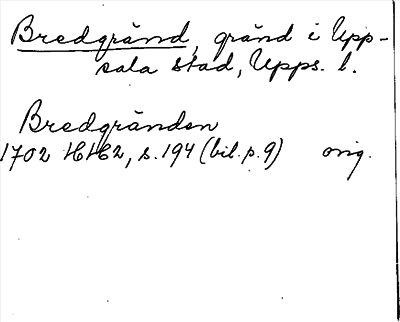 Bredgränd, gränd i Upp-
sala stad, Upps. l.
Bredgränden
1702 HH2, s. 194 (bil. p. 9) orig.